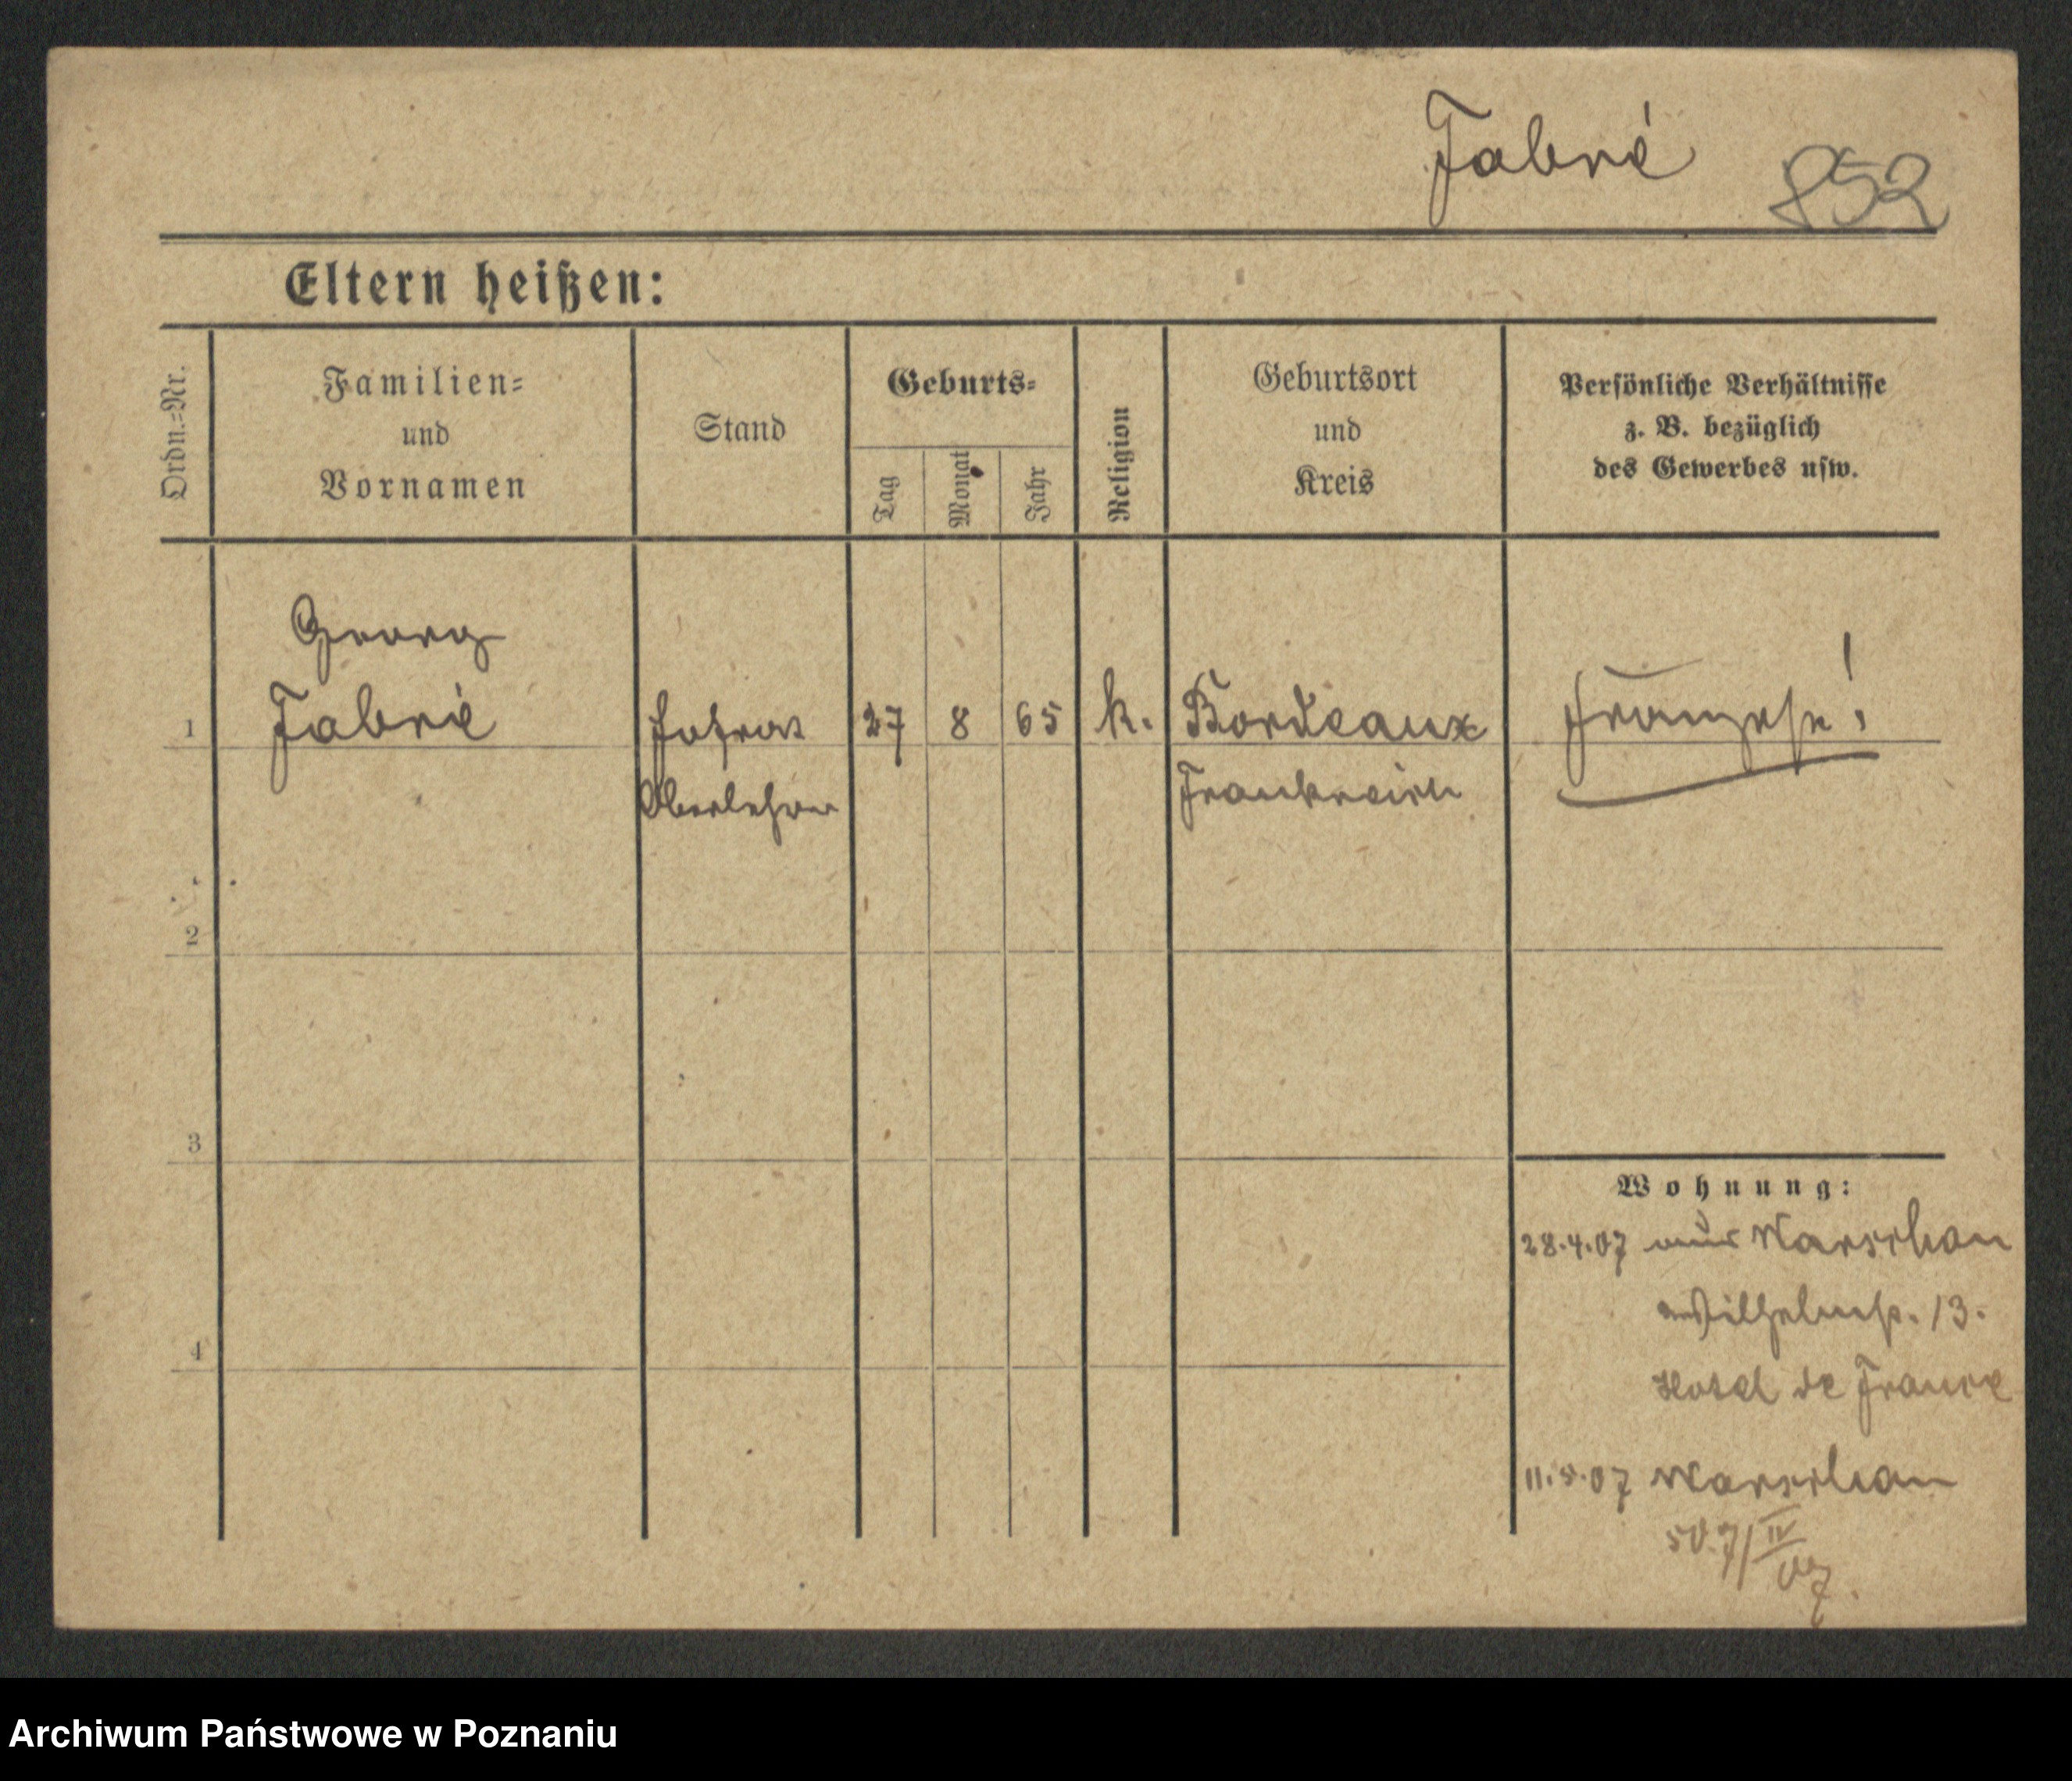 Fabré 852
Eltern heißen:
Ordn.=Nr.
Familien=
und
Vornamen
Stand
Geburts=
Tag
Monat
Jahr
Religion
Geburtsort
und
Kreis
Persönliche Verhältnisse
z. B. bezüglich
des Gewerbes usw.
Georg
1 Fabré 27 8 65 k. Bordeaux Franzose!
Oberlehrer Frankreich
2
3
4
Wohnung:
28.4.07 aus Warschau
Wilhelmsp. 13.
Hotel de France
11.5.07 Warschau
50.7/IV
07.
Archiwum Państwowe w Poznaniu